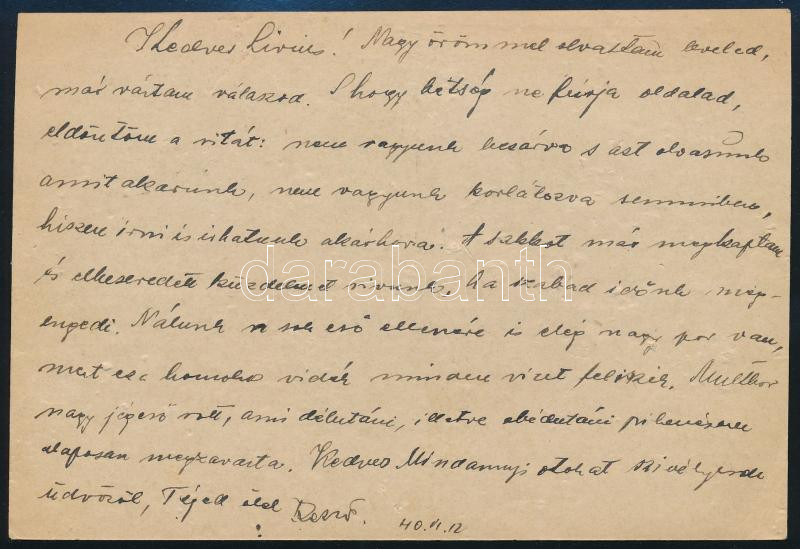 Kedves Livius! Nagy örömmel olvastam leveled,
már vártam válaszod. S hogy kétség ne fúrja oldalad,
eldöntöm a vitát: nem vagyunk bezárva s azt olvasunk
amit akarunk, nem vagyunk korlátozva semmiben,
hiszen írni is írhatunk akárhova. A sakkot már megkaptam
és elkeseredett küzdelmet vívunk, ha szabad időnk meg-
engedi. Nálunk a sok eső ellenére is elég nagy por van,
mert ez a homokos vidék minden vizet feliszik. Multkor
nagy jégeső volt, ami délutáni, illetve ebédutáni pihenésem
alaposan megzavarta. Kedves Mindannyiotokat szívélyesen
üdvözöl, Téged ölel Dezső.
40.VI.12
darabanth